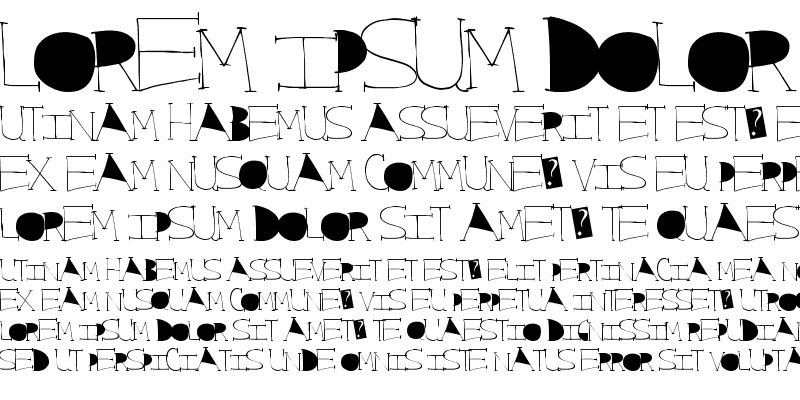 LOREM IPSUM DOLOR
UTINAM HABEMUS ASSUEVERIT ET EST? E
EX EAM NUSQUAM COMMUNE? VIS EU PERPE
LOREM IPSUM DOLOR SIT AMET? TE QUAES
UTINAM HABEMUS ASSUEVERIT ET EST? ELIT PERTINACIA MEA NO
EX EAM NUSQUAM COMMUNE? VIS EU PERPETUA INTERESSET? UTROQ
LOREM IPSUM DOLOR SIT AMET? TE QUAESTIO DIGNISSIM REPUDIAN
SED UT PERSPICIATIS UNDE OMNIS ISTE NATUS ERROR SIT VOLUPTA